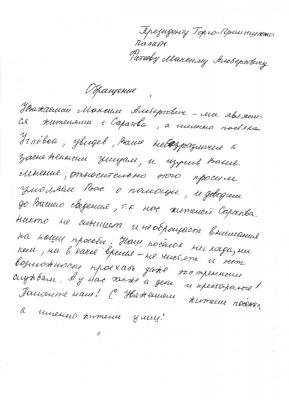 Президенту Торго-Промышленной
палаты
Фатееву Максиму Альбертовичу
Обращение
Уважаемый Максим Альбертович - мы являем-
ся жителями г. Саратова, а именно посёлка
увидев, Ваше небезразличие к
заснеженным улицам, и изучив Ваше
мнение, относительно этого просим
умоляем Вас о помощи, и доводим
до Вашего сведения, т.к нас жителей Саратова
никто не слышит и не обращает внимания
на наши просьбы. Наш посёлок никогда, ни
кем, ни в какое время - не чистят и нет
возможности проехать даже экстренным
службам. А у нас также и дети и престарелые!
Помогите нам! С Уважением жители посёлка
а именно жители улиц!